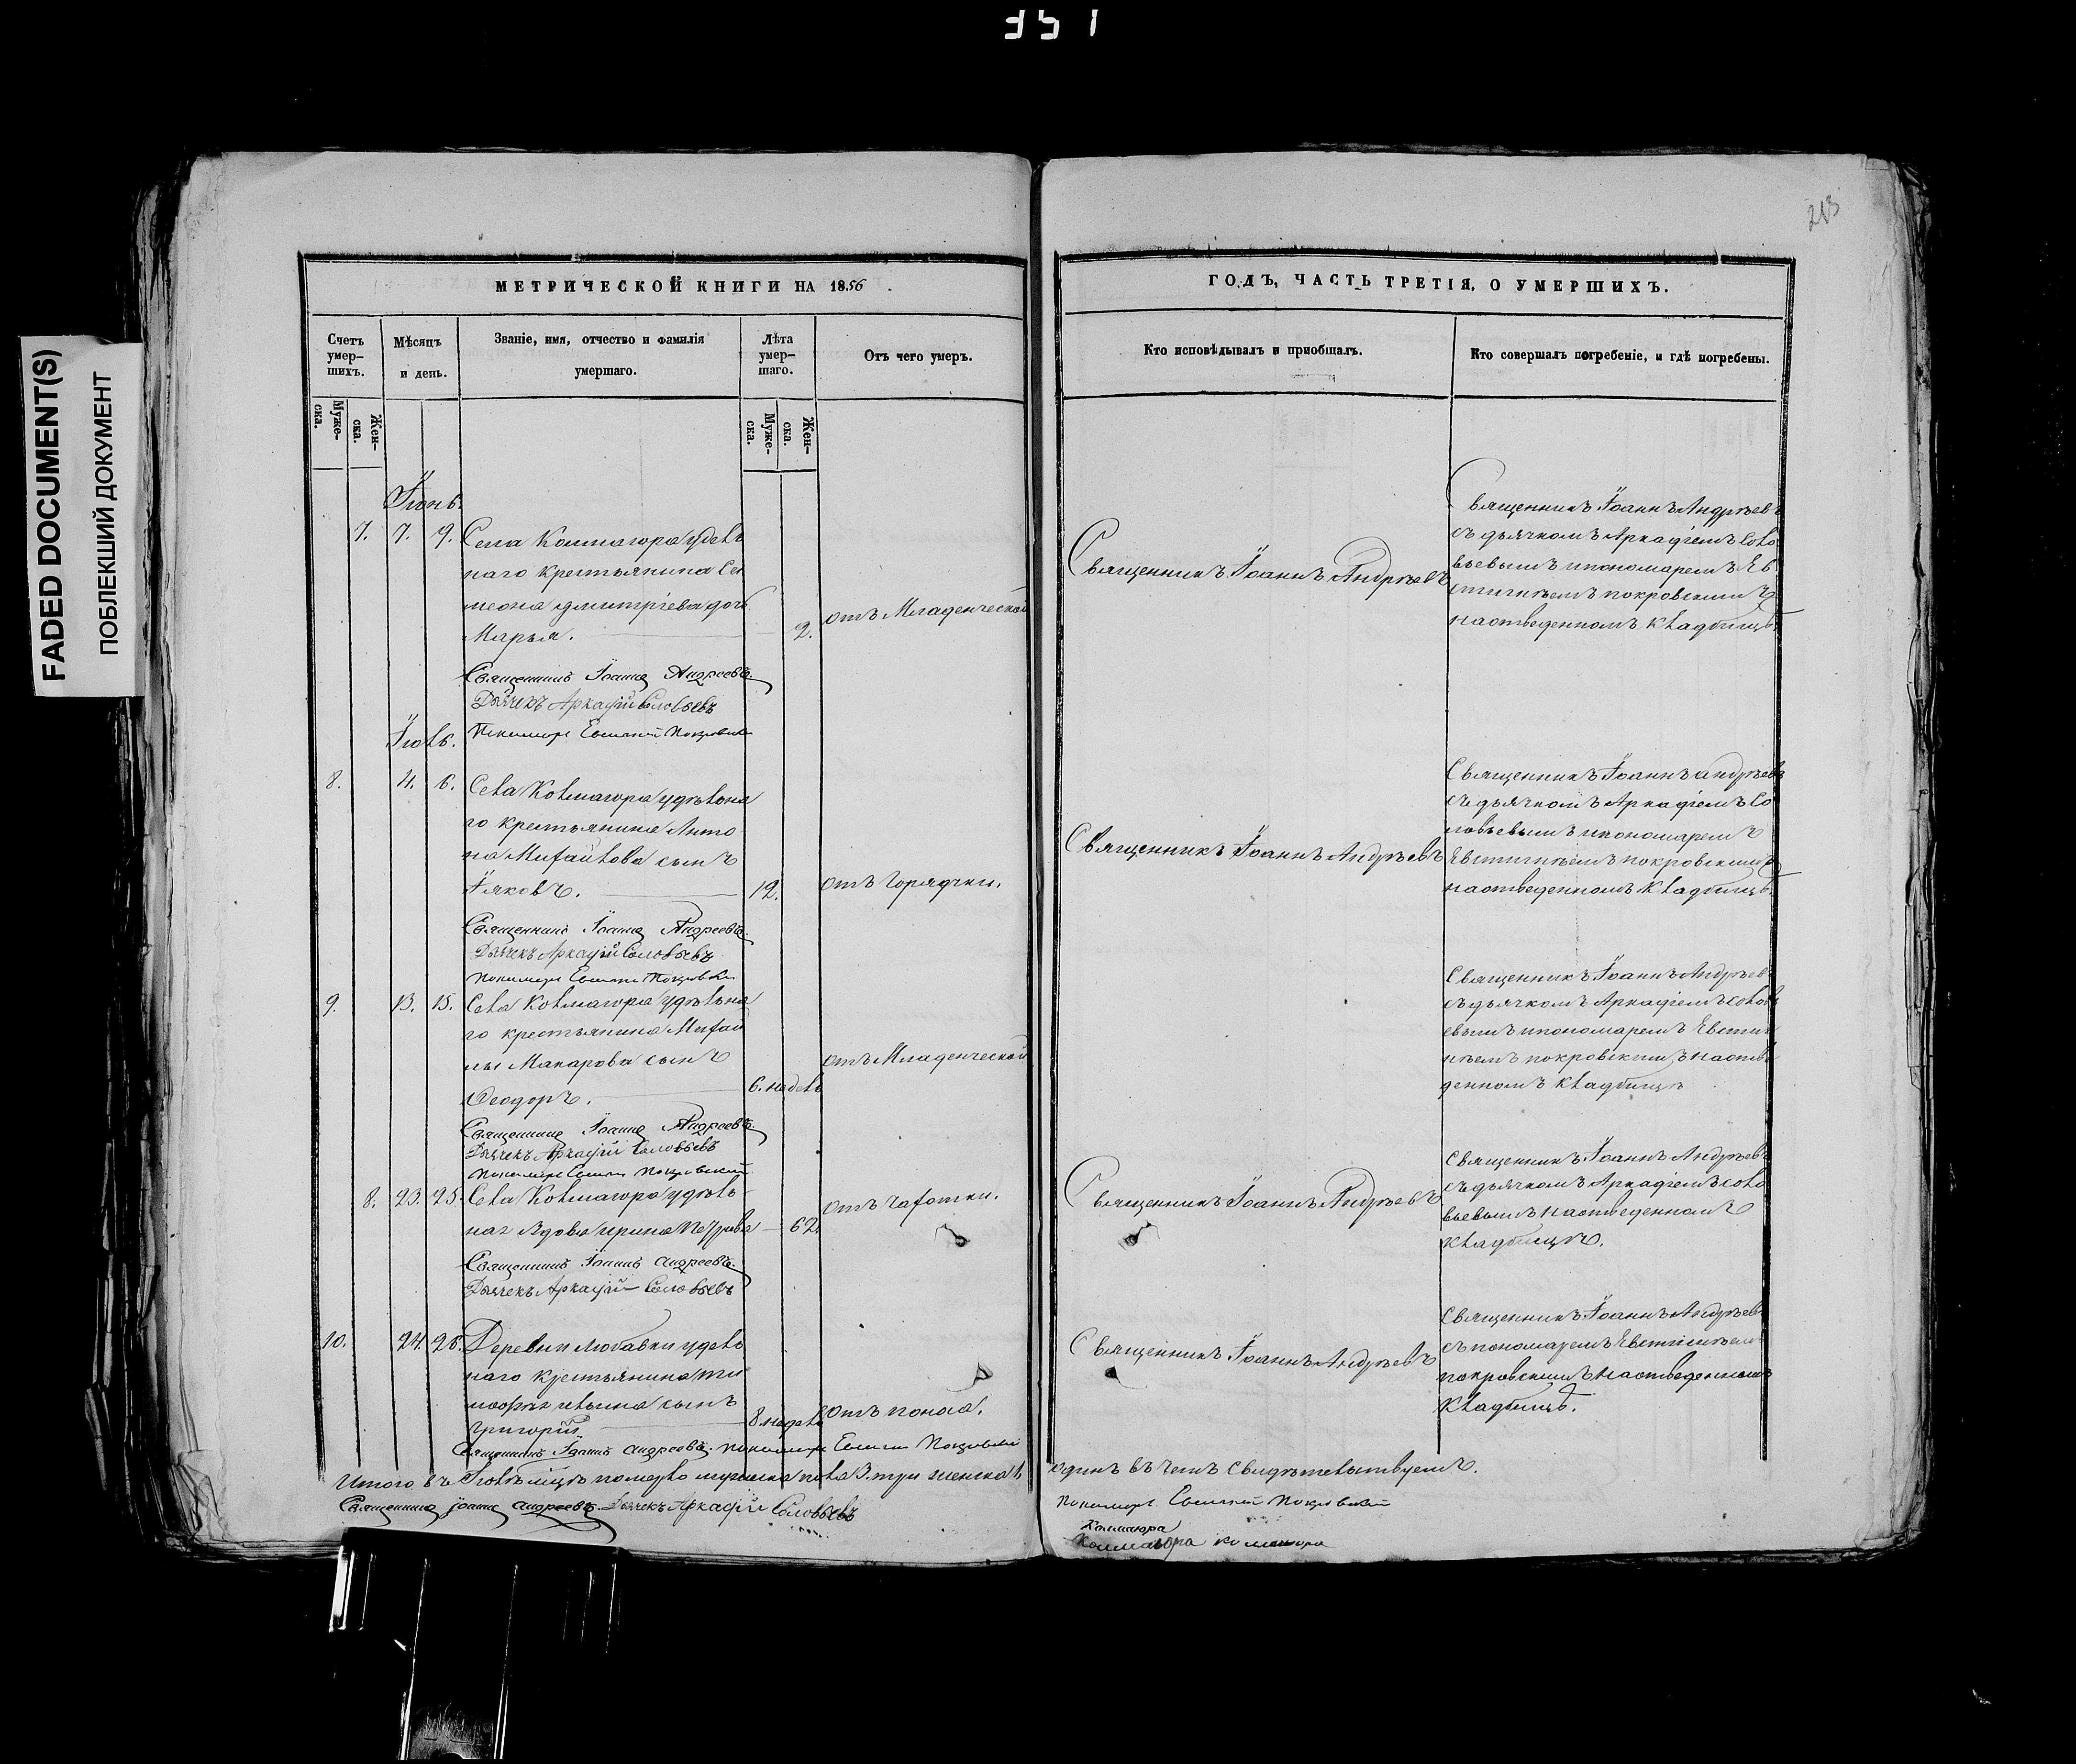 351
FADED DOCUMENT(S)
ПОБЛЕКШИЙ ДОКУМЕНТ
213
МЕТРИЧЕСКОЙ КНИГИ НА 1856
Счетъ умер-шихъ.
Мѣсяцъ и день.
Званіе, имя, отчество и фамилія умершаго.
Лѣта умер-шаго.
Отъ чего умеръ.
Муже-ска.
Жен-ска.
Муже-ска.
Жен-ска.
Іюнь.
7. 7. 9. Села Колмагора удѣль
наго крестьянина Си
меона Дмитріева дочь
Марья. 2. отъ Младенческой
Священникъ Іоаннъ Андреевъ.
Дьячекъ Аркадій Соловьевъ
Пономарь Евстигней Покровскій
Іюль.
8. 4. 6. Села Колмагора удѣльна
го крестьянина Анто
на Михайлова сынъ
Іяковъ. 12. отъ горячки.
Священникъ Іоаннъ Андреевъ.
Дьячекъ Аркадій Соловьевъ
Пономарь Евстигней Покровскій
9. 13. 15. Села Колмагора удѣльна
го крестьянина Михаи
лы Макарова сынъ
Ѳеодоръ. 6. недель отъ Младенческой
Священникъ Іоаннъ Андреевъ.
Дьячекъ Аркадій Соловьевъ
Пономарь Евстигней Покровскій
8. 23. 25. Села Колмагора удѣль
ная вдова Ирина Петрова 62. отъ чахотки.
Священникъ Іоаннъ Андреевъ.
Дьячекъ Аркадій Соловьевъ
10. 24. 26. Деревни Любавки удель
наго крестьянина Ти
мофея сынъ
Григорій 8. недель отъ поноса.
Священникъ Іоаннъ Андреевъ. Пономарь Евстигней Покровскій
Итого въ Іюлѣ мцѣ померло мужеска пола 3. три женска 1
Священникъ Іоаннъ Андреевъ. Дьячекъ Аркадій Соловьевъ
ГОДЪ, ЧАСТЬ ТРЕТІЯ, О УМЕРШИХЪ.
Кто исповѣдывалъ и пріобщалъ.
Кто совершалъ погребеніе, и гдѣ погребены.
Священникъ Іоаннъ Андрѣевъ
Священникъ Іоаннъ Андрѣевъ
съ дьячкомъ Аркадіемъ Соло
вьевымъ и пономаремъ Ев
стигнѣемъ покровскимъ
на отведенномъ кладбищѣ.
Священникъ Іоаннъ Андрѣевъ
Священникъ Іоаннъ Андрѣевъ
съ дьячкомъ Аркадіемъ Со
ловьевымъ и пономаремъ
Евстигнѣемъ покровскимъ
на отведенномъ кладбищѣ.
Священникъ Іоаннъ Андрѣев
съ дьячкомъ Аркадіемъ Соловь
евымъ и пономаремъ Евстиг
нѣемъ покровскимъ на отве
денномъ кладбищѣ
Священникъ Іоаннъ Андрѣевъ
Священникъ Іоаннъ Андрѣевъ
съ дьячкомъ Аркадіемъ Соло
вьевымъ на отведенномъ
кладбищѣ.
Священникъ Іоаннъ Андрѣевъ
Священникъ Іоаннъ Андрѣев
съ пономаремъ Евстигнѣем
покровскимъ на отведенномъ
кладбищѣ.
одинъ въ чемъ свидѣтельствуемъ.
Пономарь Евстигней Покровскій
Колмагора
Колмагора